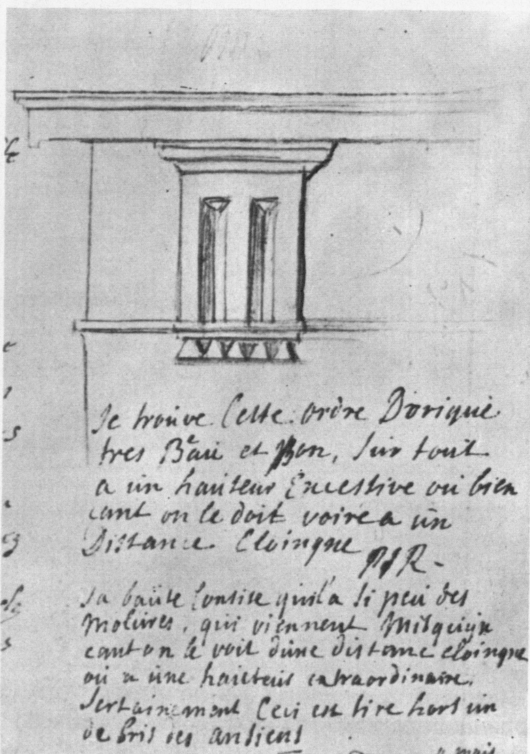 Je trouve Cette ordre Dorique
tres Beau et Bon, Sur tout
a un hauteur Excessive ou bien
cant on le doit voire a un
Distance Eloingne
PJR-
Sa baute Consiste quil a si peu des
Molures, qui viennent
cant on le voit dune distance eloingne
ou a une hauteur extraordinaire.
Sertainement Ceci est tire hors un
de bris des ansiens
a mais